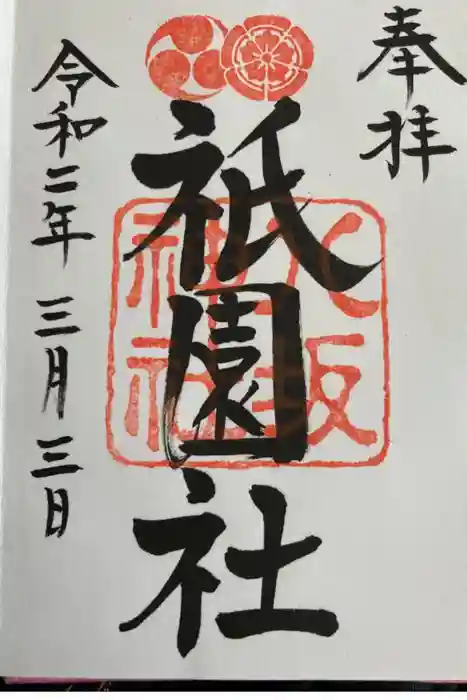 奉拝
祇園社
八坂神社
令和二年 三月三日